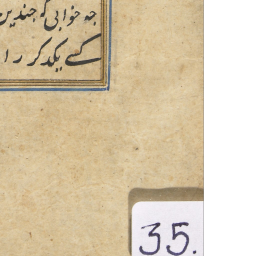 چه خوابی که چندین
کسے یکدکر را
35.